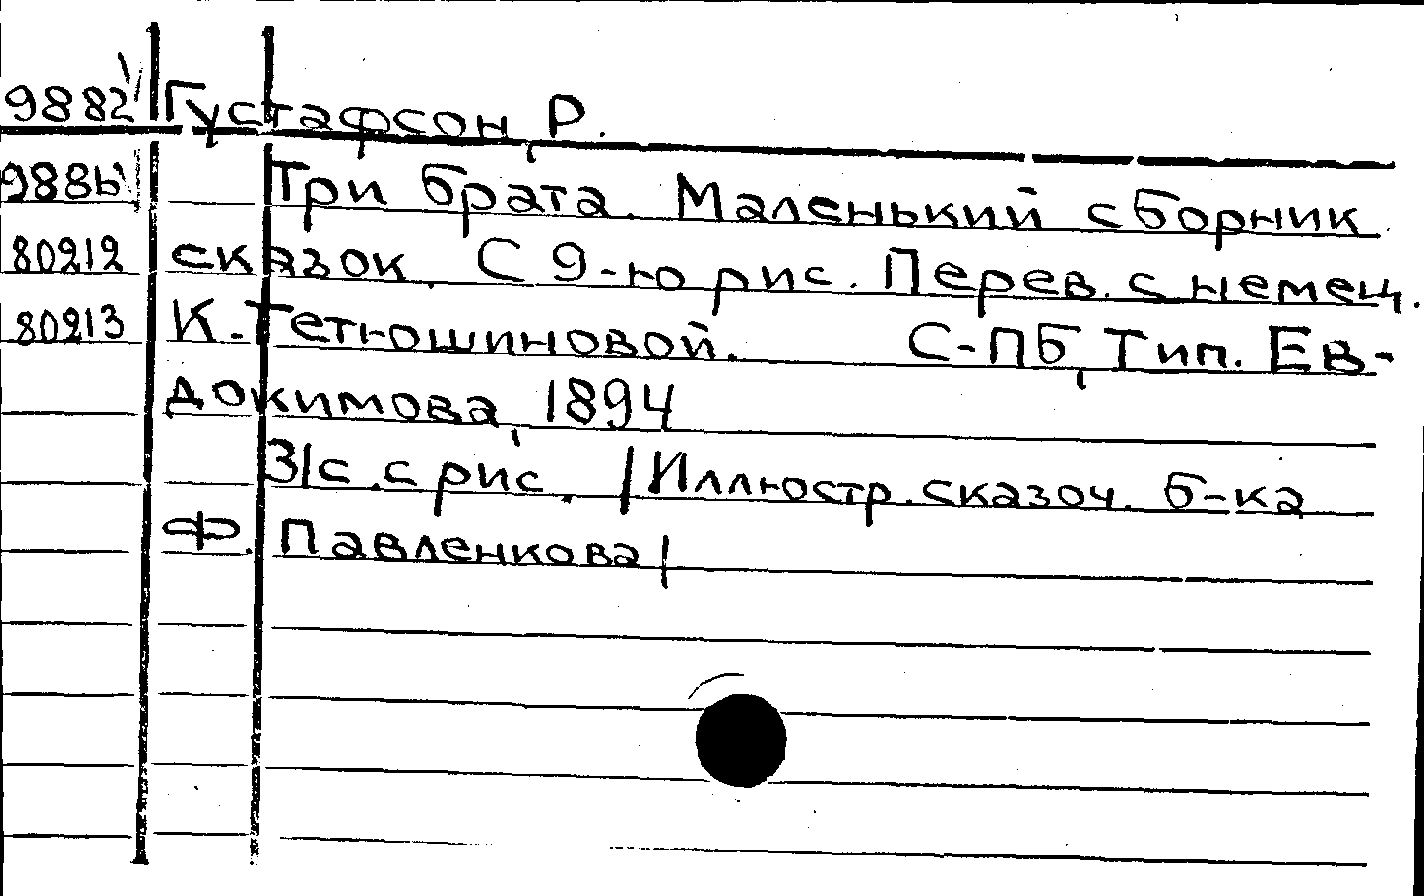 9882 Густафсон, Р.
988ь Три брата. Маленький сборник
80212 сказок. С 9-ю рис. Перев. с немец.
80213 К. Тетюшиновой. С-ПБ, Тип. Ев-
докимова, 1894
31с. с рис. /Иллюстр. сказоч. б-ка
Ф. Павленкова/